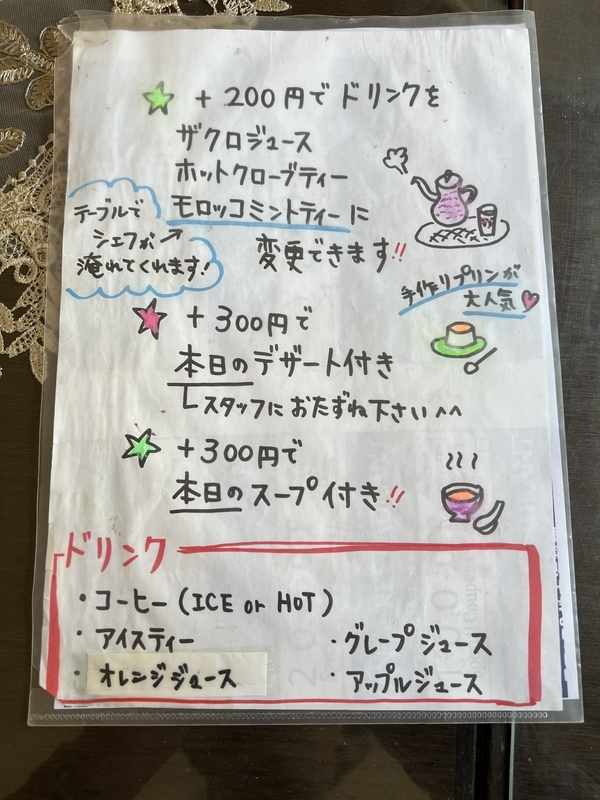 +200円でドリンクを
ザクロジュース
ホットクローブティー
モロッコミントティーに
変更できます!!
テーブルで
シェフが
淹れてくれます!
手作りプリンが
大人気
+300円で
本日のデザート付き
スタッフにおたずね下さい^^
+300円で
本日のスープ付き!!
ドリンク
・コーヒー(ICE or HOT)
・アイスティー
・オレンジジュース
・グレープジュース
・アップルジュース